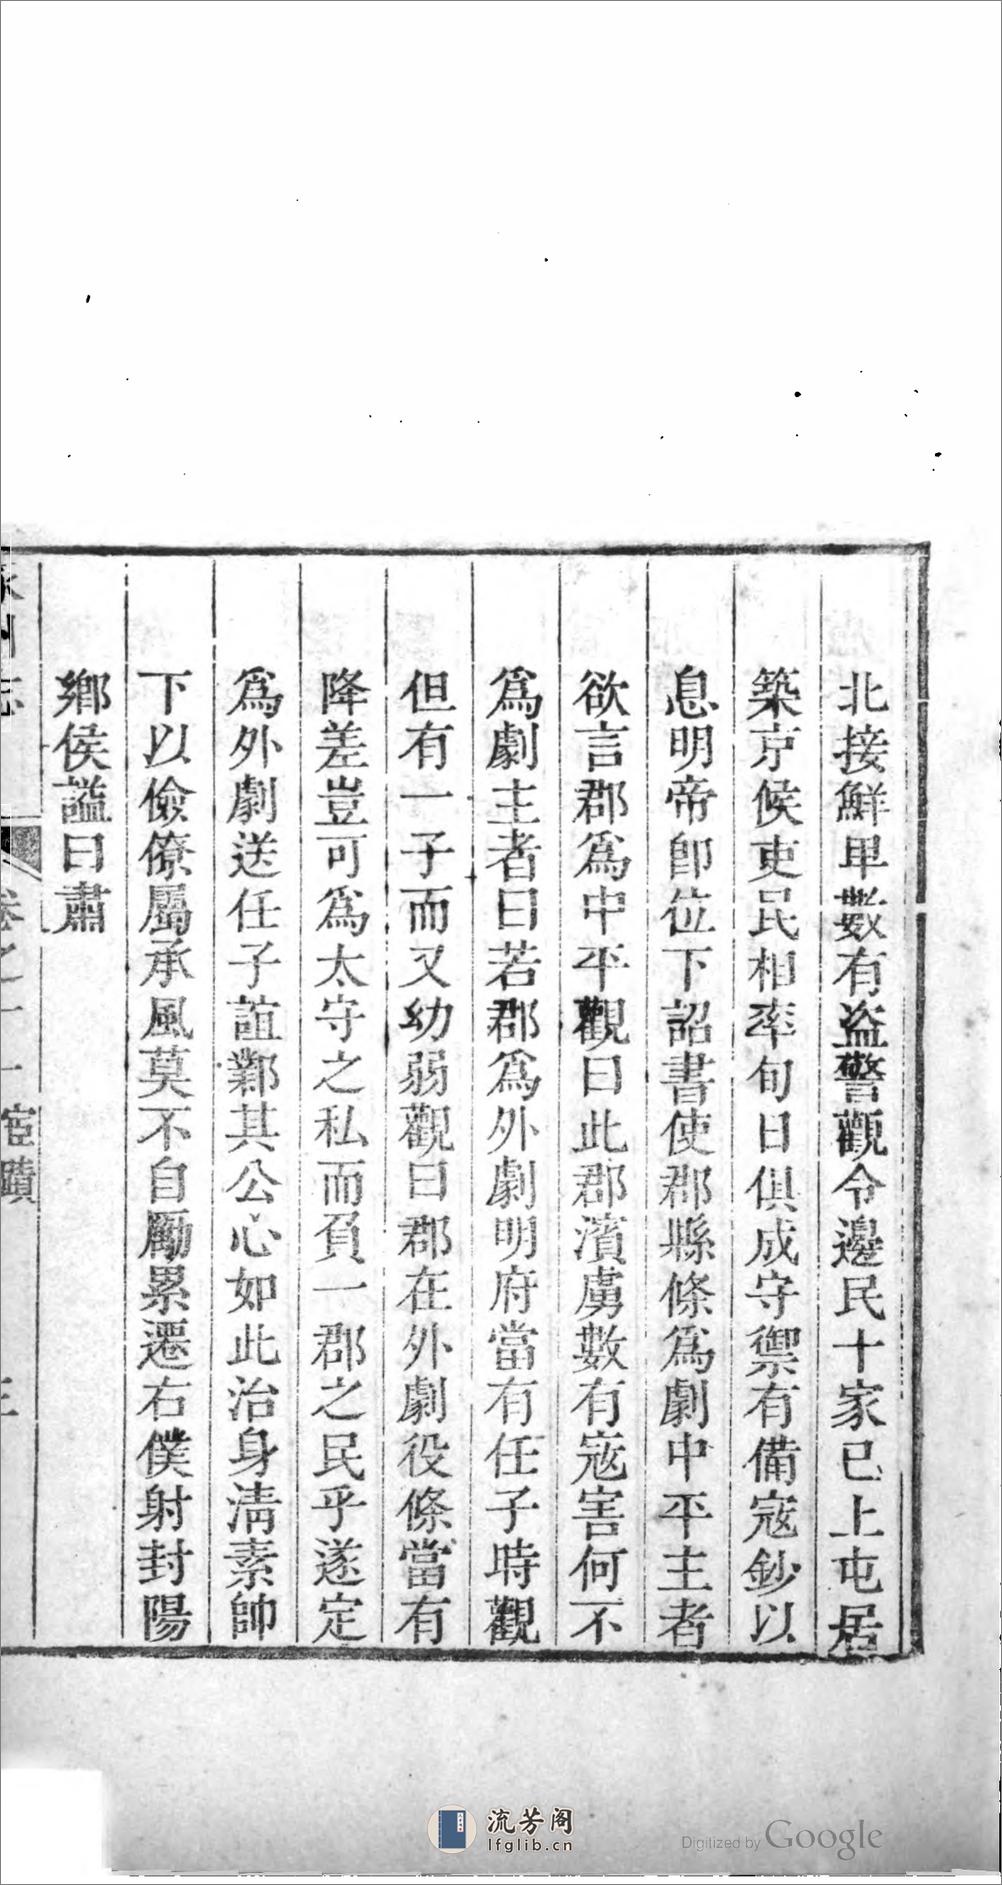 北接鮮卑數有盗警觀令邊民十家已上屯居
築京候吏民相率旬日俱成守禦有備寇鈔以
息明帝卽位下詔書使郡縣條爲劇中平主者
欲言郡爲中平觀曰此郡濱虜數有寇害何不
爲劇主者曰若郡爲外劇明府當有任子時觀
但有一子而又幼弱觀曰郡在外劇役條當有
降差豈可爲太守之私而負一郡之民乎遂定
爲外劇送任子詣鄴其公心如此治身淸素帥
下以儉僚屬承風莫不自勵累遷右僕射封陽
鄉侯謚曰肅
州志
卷之十一 宦蹟
三
流芳阁
lfglib.cn
Digitized by Google